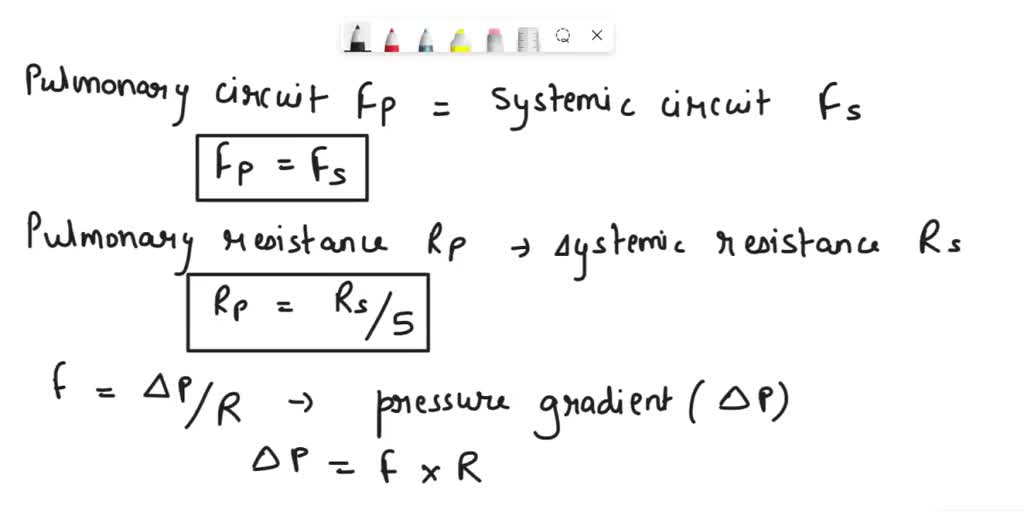 Pulmonary circuit Fp = systemic circuit Fs
Fp = Fs
Pulmonary resistance Rp → systemic resistance Rs
Rp = Rs/5
f = ΔP/R → pressure gradient (ΔP)
ΔP = f × R